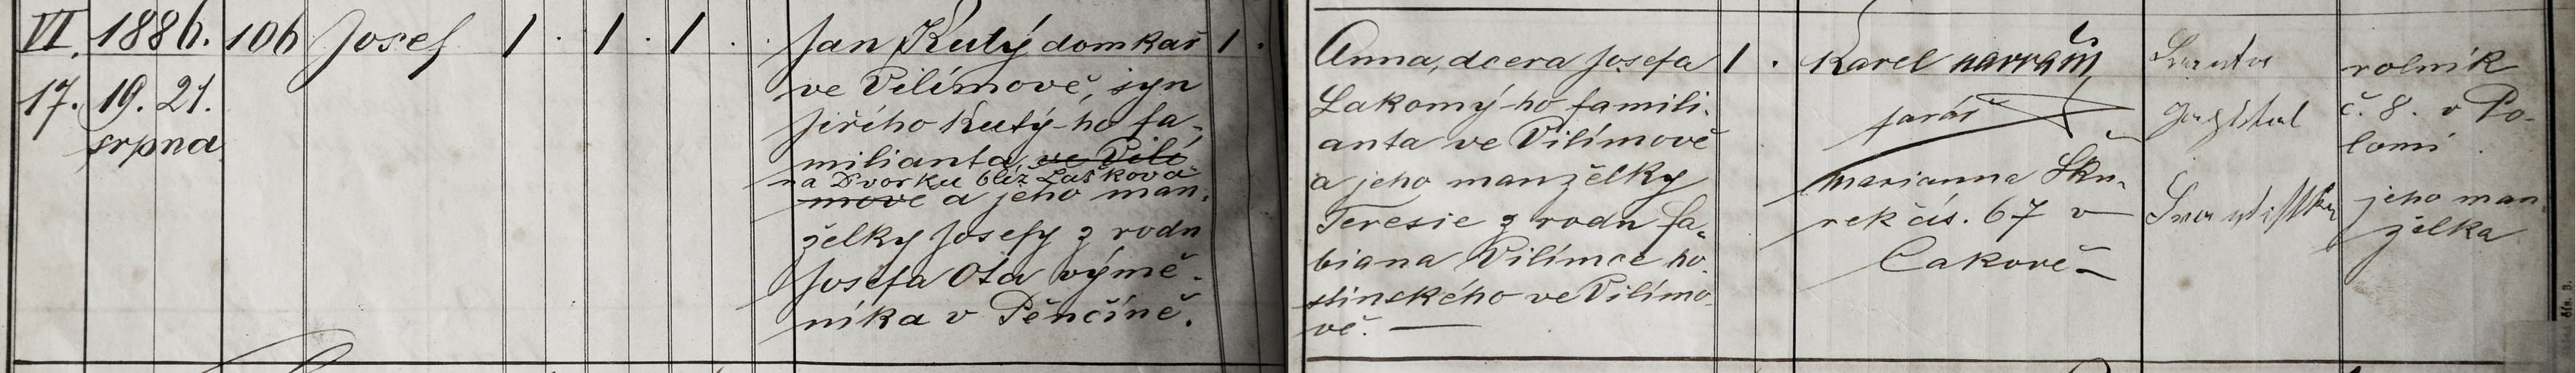 VI. 1886. 106 Josef 1 . 1 . 1 .
17. 19. 21.
srpna
Jan Kutý domkař 1 .
ve Vilímově, syn
Jiřího Kutý-ho fa-
milianta ve Vilí-
na Dvorku blíž Laškova
mově a jeho man-
želky Josefy z rodu
Josefa Ota výmě-
níka v Pěnčíně.
Anna, dcera Josefa 1 .
Lakomý-ho famili-
anta ve Vilímově
a jeho manželky
Teresie z rodu Fa-
biana Vilímce ho-
stinského ve Vilímo-
vě. —
Karel
farář
Marianna Sku-
rek čís. 67 v
Cakově
rolník
č. 8. v Po-
lomí.
jeho man-
želka